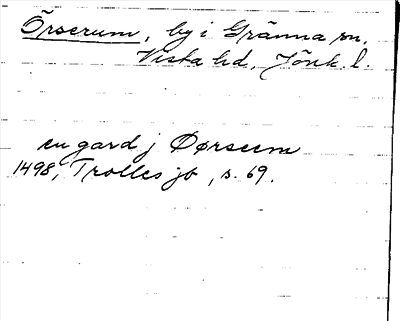 Örserum, by i Gränna sn.
Vista hd, Jönk. l.
en gard j Ørseem
1498, Trolles jb, s. 69.